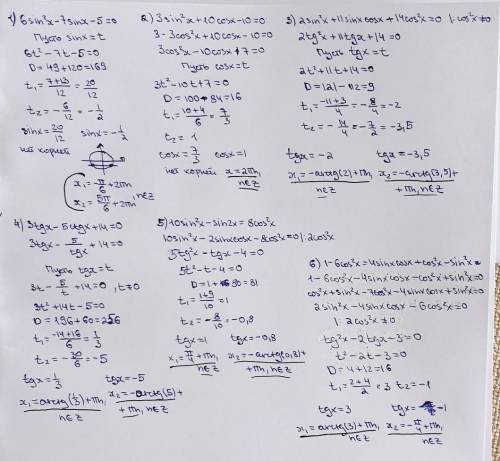 1) 6sin²x-7sinx-5=0
Пусть sinx=t
6t²-7t-5=0
D=49+120=169
t₁=7+13/12=20/12
t₂=-6/12=-1/2
sinx=20/12 sinx=-1/2
нет корней
x₁=-π/6+2πn
x₂=5π/6+2πn, n∈Z
2) 3sin²x+10cosx-10=0
3-3cos²x+10cosx-10=0
3cos²x-10cosx+7=0
Пусть cosx=t
3t²-10t+7=0
D=100-84=16
t₁=10+4/6=7/3
t₂=1
cosx=7/3 cosx=1
нет корней x=2πn, n∈Z
3) 2sin²x+11sinxcosx+14cos²x=0 |:cos²x≠0
2tg²x+11tgx+14=0
Пусть tgx=t
2t²+11t+14=0
D=121-112=9
t₁=-11+3/4=-8/4=-2
t₂=-14/4=-7/2=-3,5
tgx=-2 tgx=-3,5
x₁=-arctg(2)+πn, n∈Z x₂=-arctg(3,5)+
+πn, n∈Z
4) 3tgx-5ctgx+14=0
3tgx-5/tgx+14=0
Пусть tgx=t
3t-5/t+14=0, t≠0
3t²+14t-5=0
D=196+60=256
t₁=-14+16/6=1/3
t₂=-30/6=-5
tgx=1/3 tgx=-5
x₁=arctg(1/3)+πn, n∈Z x₂=-arctg(5)+
+πn, n∈Z
5) 10sin²x-sin2x=8cos²x
10sin²x-2sinxcosx-8cos²x=0|:2cos²x
5tg²x-tgx-4=0
5t²-t-4=0
D=1+80=81
t₁=1+9/10=1
t₂=-8/10=-0,8
tgx=1 tgx=-0,8
x₁=π/4+πn, n∈Z x₂=-arctg(0,8)+
+πn, n∈Z
6) 1-6cos²x=4sinxcosx+cos²x-sin²x
1-6cos²x-4sinxcosx-cos²x+sin²x=0
cos²x+sin²x-7cos²x-4sinxcosx+sin²x=0
2sin²x-4sinxcosx-6cos²x=0
| 2cos²x≠0
tg²x-2tgx-3=0
t²-2t-3=0
D=4+12=16
t₁=2+4/2=3 t₂=-1
tgx=3 tgx=-1
x₁=arctg(3)+πn, n∈Z x₂=-π/4+πn, n∈Z